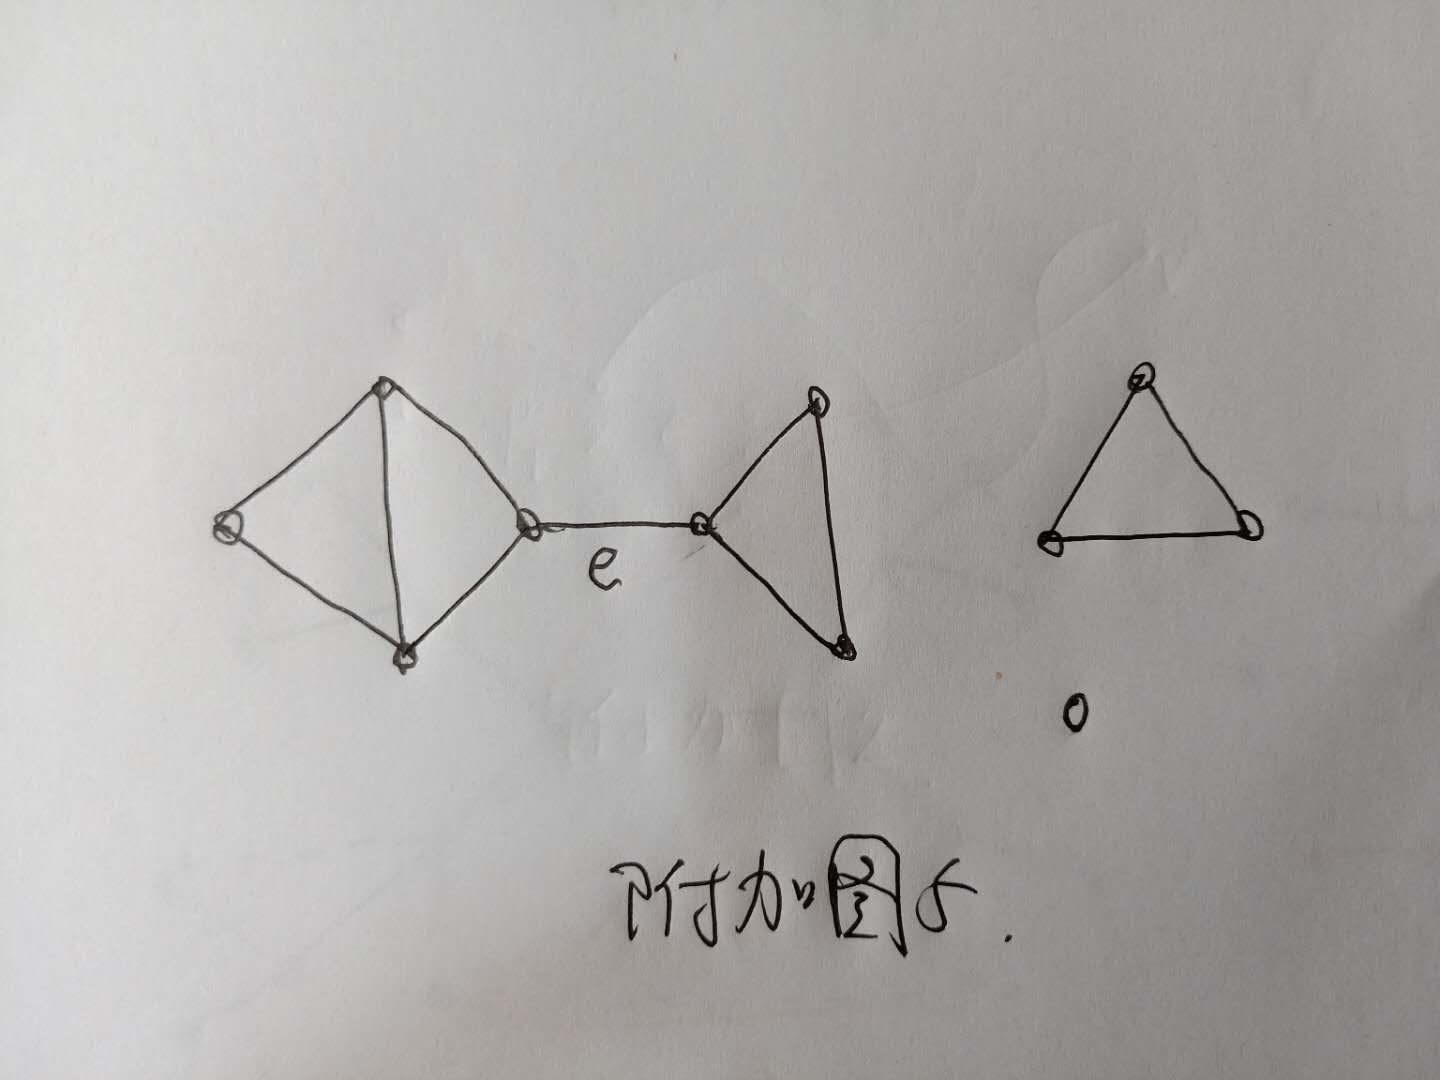 e
附加图5.